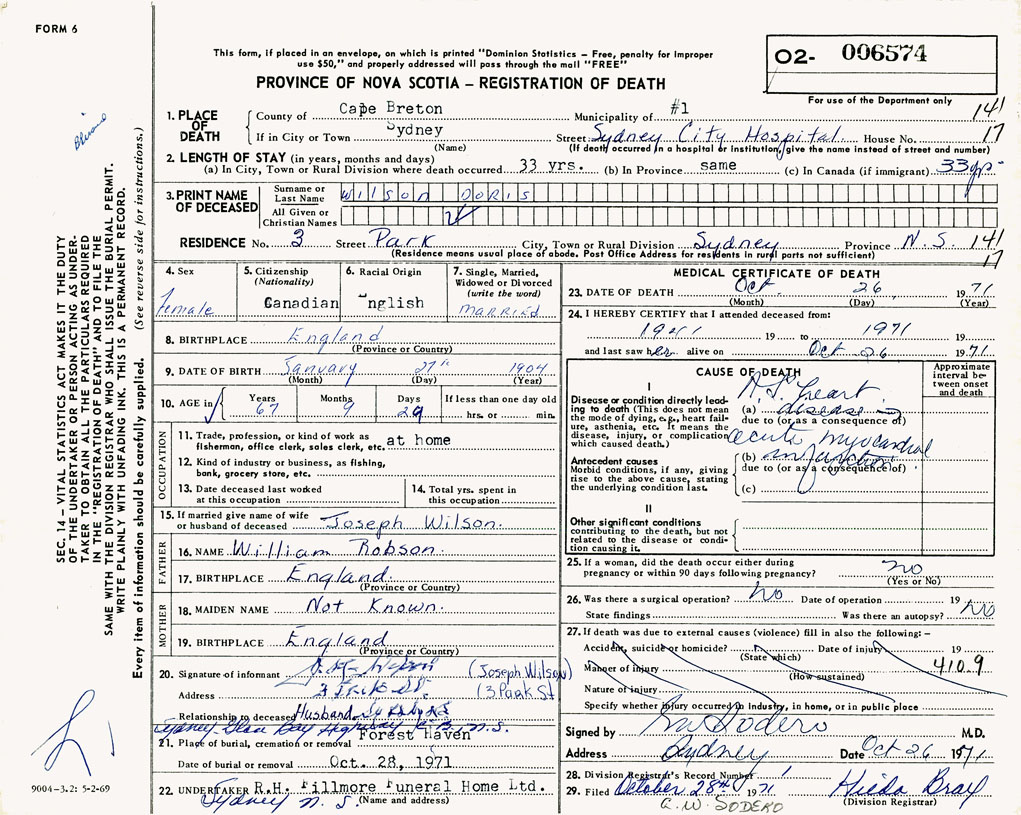 FORM 6
This form, if placed in an envelope, on which is printed "Dominion Statistics – Free, penalty for improper
use $50," and properly addressed will pass through the mail "FREE"
PROVINCE OF NOVA SCOTIA – REGISTRATION OF DEATH
02- 006574
For use of the Department only
1. PLACE OF DEATH
County of Cape Breton Municipality of #1 141
If in City or Town Sydney Street Sydney City Hospital House No. 17
(Name) (If death occurred in a hospital or institution, give the name instead of street and number)
2. LENGTH OF STAY (in years, months and days)
(a) In City, Town or Rural Division where death occurred 33 yrs. (b) In Province same (c) In Canada (if immigrant) 33 yrs
3. PRINT NAME OF DECEASED
Surname or Last Name WILSON DORIS
All Given or Christian Names
RESIDENCE No. 3 Street Park City, Town or Rural Division Sydney Province N.S. 141
(Residence means usual place of abode. Post Office Address for residents in rural parts not sufficient) 17
4. Sex female
5. Citizenship (Nationality) Canadian
6. Racial Origin nglish
7. Single, Married, Widowed or Divorced (write the word) MARRIED
8. BIRTHPLACE England
(Province or Country)
9. DATE OF BIRTH January 27th 1904
(Month) (Day) (Year)
10. AGE in Years 67 Months 9 Days 29 If less than one day old hrs. or min.
OCCUPATION
11. Trade, profession, or kind of work as fisherman, office clerk, sales clerk, etc. at home
12. Kind of industry or business, as fishing, bank, grocery store, etc.
13. Date deceased last worked at this occupation
14. Total yrs. spent in this occupation
15. If married give name of wife or husband of deceased Joseph Wilson.
FATHER
16. NAME William Robson.
17. BIRTHPLACE England.
(Province or Country)
MOTHER
18. MAIDEN NAME Not Known.
19. BIRTHPLACE England
(Province or Country)
20. Signature of informant (Joseph Wilson)
Address 3 Park St. (3 Park St
Relationship to deceased Husband
Sydney Glace Bay Highway C.B. N.S.
Forest Haven
21. Place of burial, cremation or removal
Date of burial or removal Oct. 28, 1971
22. UNDERTAKER R.H. Fillmore Funeral Home Ltd.
Sydney N.S. (Name and address)
MEDICAL CERTIFICATE OF DEATH
23. DATE OF DEATH Oct 26 1971
(Month) (Day) (Year)
24. I HEREBY CERTIFY that I attended deceased from:
1941 19 to 1971 19
and last saw her alive on Oct 26 1971
CAUSE OF DEATH
Approximate interval between onset and death
I
Disease or condition directly leading to death (This does not mean the mode of dying, e.g., heart failure, asthenia, etc. It means the disease, injury, or complication which caused death.)
(a) heart disease
due to (or as a consequence of)
acute myocardial
(b) infarction
due to (or as a consequence of)
(c)
Antecedent causes
Morbid conditions, if any, giving rise to the above cause, stating the underlying condition last.
II
Other significant conditions contributing to the death, but not related to the disease or condition causing it.
25. If a woman, did the death occur either during pregnancy or within 90 days following pregnancy? no
(Yes or No)
26. Was there a surgical operation? no Date of operation 19
State findings Was there an autopsy? no
27. If death was due to external causes (violence) fill in also the following: –
Accident, suicide or homicide? Date of injury 19
(State which)
Manner of injury 410.9
(How sustained)
Nature of injury
Specify whether injury occurred in industry, in home, or in public place
Signed by Sodero M.D.
Address Sydney Date Oct 26 1971
28. Division Registrar's Record Number
29. Filed October 28th 1971 Hilda Bray
G. W. SODERO (Division Registrar)
SEC. 14 – VITAL STATISTICS ACT MAKES IT THE DUTY
OF THE UNDERTAKER OR PERSON ACTING AS UNDER-
TAKER TO OBTAIN ALL THE PARTICULARS REQUIRED
IN THE "REGISTRATION OF DEATH" AND TO FILE THE
SAME WITH THE DIVISION REGISTRAR WHO SHALL ISSUE THE BURIAL PERMIT.
WRITE PLAINLY WITH UNFADING INK. THIS IS A PERMANENT RECORD.
Every item of information should be carefully supplied. (See reverse side for instructions.)
9004-3.2: 5-2-69